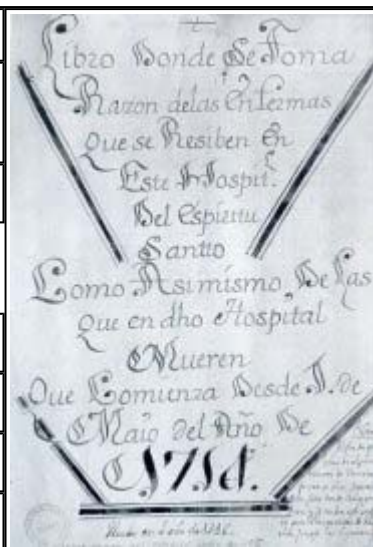 Libro Donde Se Toma
Razon delas Enfermas
Que se Resiben En
Este Hospit.l
Del Espiritu
Santto
Como Asimismo, De las
Que en dho Hospital
Mueren
Que Comienza Desde 1. de
Maio del Año De
1714.